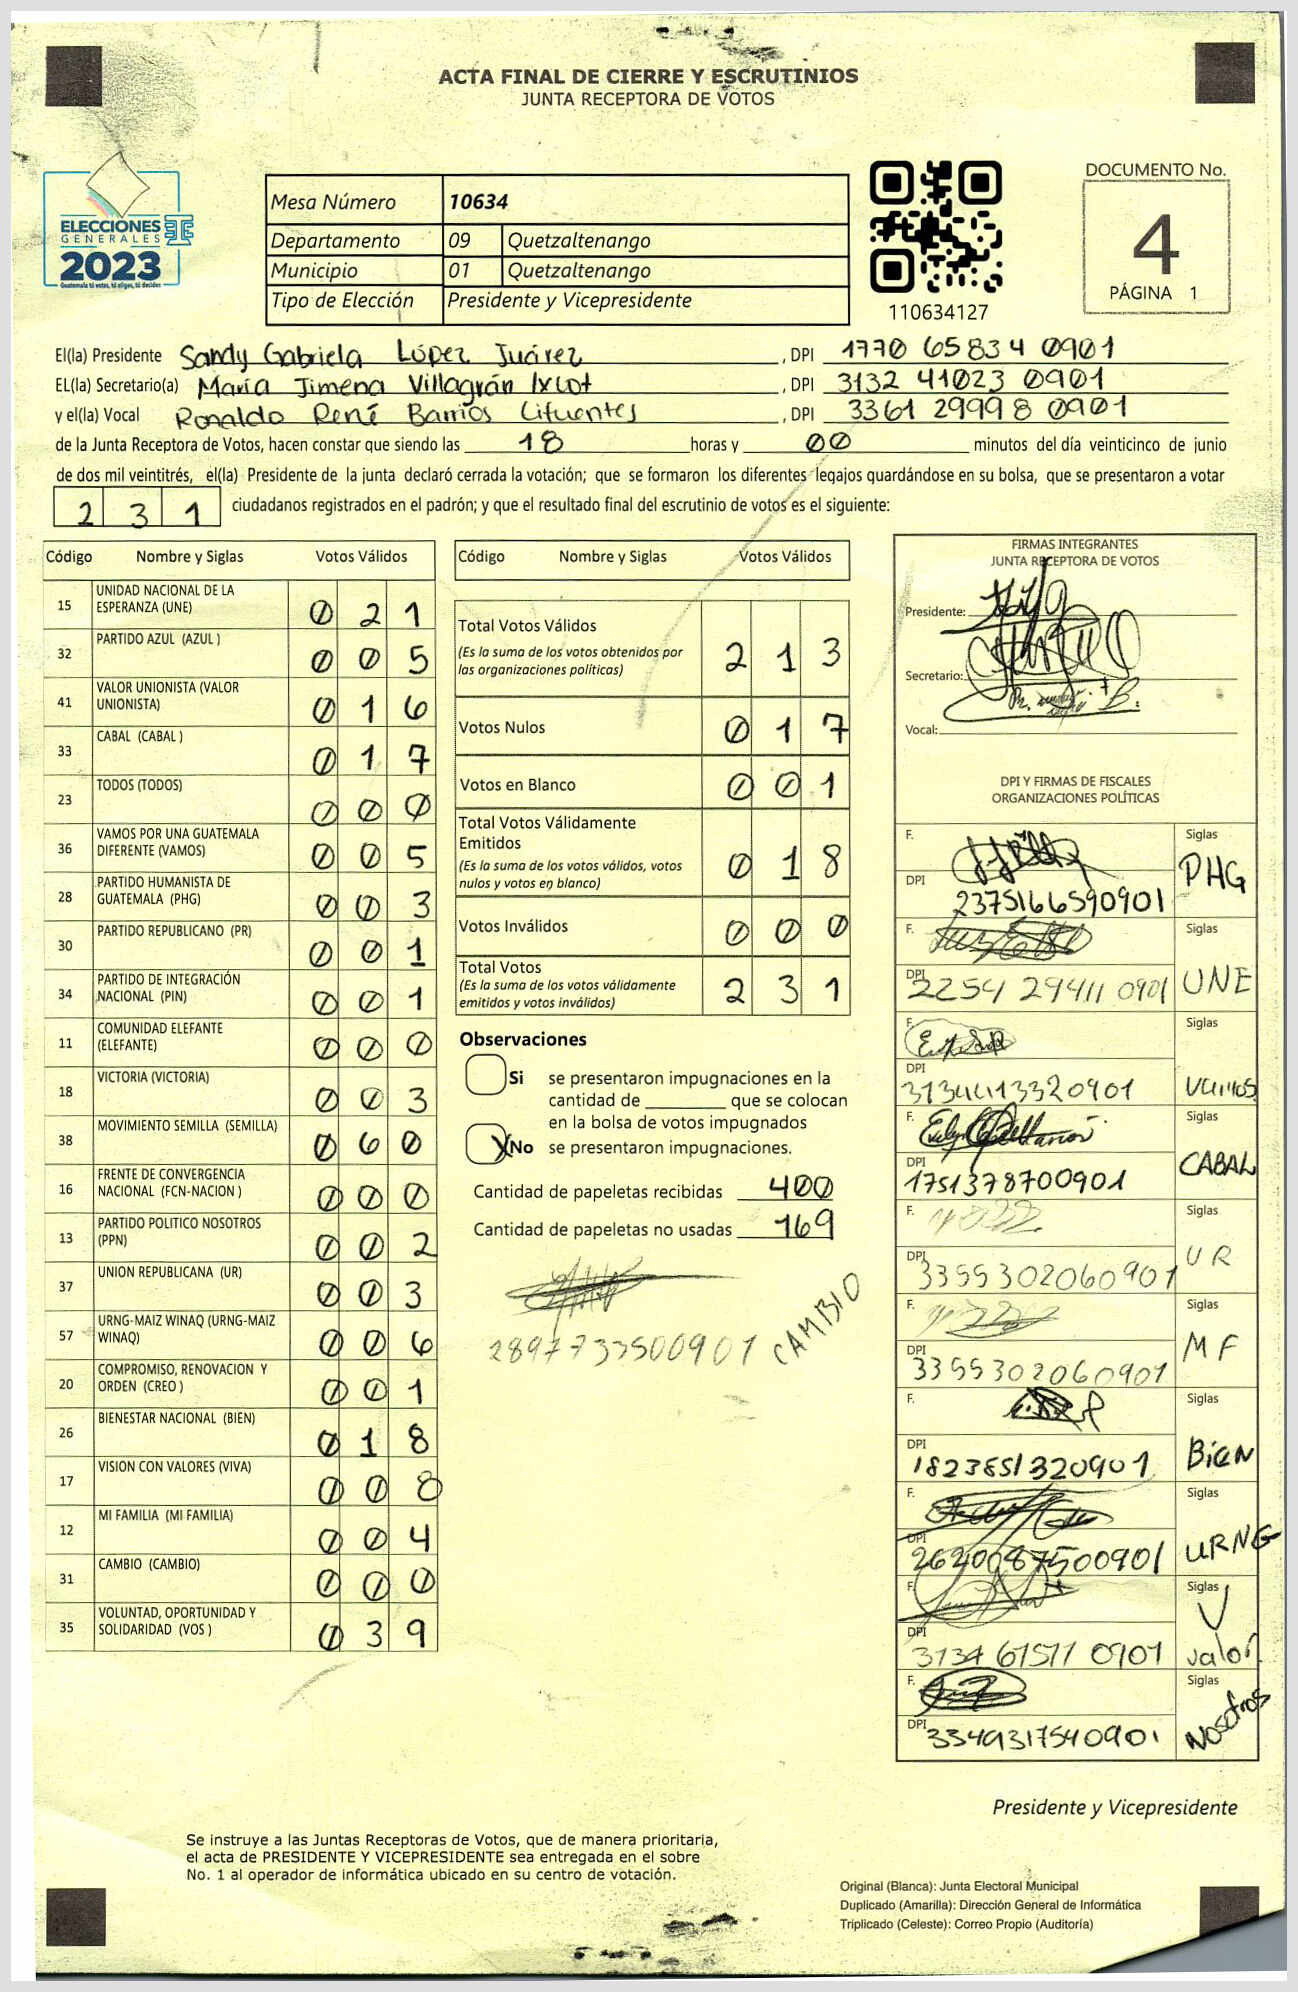 ACTA FINAL DE CIERRE Y ESCRUTINIOS
JUNTA RECEPTORA DE VOTOS
ELECCIONES
GENERALES
2023
Guatemala tú votas, tú eliges, tú decides
Mesa Número 10634
Departamento 09 Quetzaltenango
Municipio 01 Quetzaltenango
Tipo de Elección Presidente y Vicepresidente
110634127
DOCUMENTO No.
4
PÁGINA 1
El(la) Presidente Sandy Gabriela López Juárez, DPI 1770 65834 0901
EL(la) Secretario(a) María Jimena Villagrán Ixcot, DPI 3132 41023 0901
y el(la) Vocal Ronaldo René Barrios Cifuentes, DPI 3361 29998 0901
de la Junta Receptora de Votos, hacen constar que siendo las 18 horas y 00 minutos del día veinticinco de junio
de dos mil veintitrés, el(la) Presidente de la junta declaró cerrada la votación; que se formaron los diferentes legajos guardándose en su bolsa, que se presentaron a votar
231 ciudadanos registrados en el padrón; y que el resultado final del escrutinio de votos es el siguiente:
Código Nombre y Siglas Votos Válidos
15 UNIDAD NACIONAL DE LA ESPERANZA (UNE) 0 2 1
32 PARTIDO AZUL (AZUL ) 0 0 5
41 VALOR UNIONISTA (VALOR UNIONISTA) 0 1 6
33 CABAL (CABAL ) 0 1 7
23 TODOS (TODOS) 0 0 0
36 VAMOS POR UNA GUATEMALA DIFERENTE (VAMOS) 0 0 5
28 PARTIDO HUMANISTA DE GUATEMALA (PHG) 0 0 3
30 PARTIDO REPUBLICANO (PR) 0 0 1
34 PARTIDO DE INTEGRACIÓN NACIONAL (PIN) 0 0 1
11 COMUNIDAD ELEFANTE (ELEFANTE) 0 0 0
18 VICTORIA (VICTORIA) 0 0 3
38 MOVIMIENTO SEMILLA (SEMILLA) 0 6 0
16 FRENTE DE CONVERGENCIA NACIONAL (FCN-NACION ) 0 0 0
13 PARTIDO POLITICO NOSOTROS (PPN) 0 0 2
37 UNION REPUBLICANA (UR) 0 0 3
57 URNG-MAIZ WINAQ (URNG-MAIZ WINAQ) 0 0 6
20 COMPROMISO, RENOVACION Y ORDEN (CREO ) 0 0 1
26 BIENESTAR NACIONAL (BIEN) 0 1 8
17 VISION CON VALORES (VIVA) 0 0 8
12 MI FAMILIA (MI FAMILIA) 0 0 4
31 CAMBIO (CAMBIO) 0 0 0
35 VOLUNTAD, OPORTUNIDAD Y SOLIDARIDAD (VOS ) 0 3 9
Código Nombre y Siglas Votos Válidos
Total Votos Válidos 2 1 3
(Es la suma de los votos obtenidos por
las organizaciones políticas)
Votos Nulos 0 1 7
Votos en Blanco 0 0 1
Total Votos Válidamente
Emitidos 0 1 8
(Es la suma de los votos válidos, votos
nulos y votos en blanco)
Votos Inválidos 0 0 0
Total Votos 2 3 1
(Es la suma de los votos válidamente
emitidos y votos inválidos)
Observaciones
Si se presentaron impugnaciones en la
cantidad de ________ que se colocan
en la bolsa de votos impugnados
X No se presentaron impugnaciones.
Cantidad de papeletas recibidas 400
Cantidad de papeletas no usadas 169
2897733500901 CAMBIO
FIRMAS INTEGRANTES
JUNTA RECEPTORA DE VOTOS
Presidente:
Secretario:
Vocal:
DPI Y FIRMAS DE FISCALES
ORGANIZACIONES POLÍTICAS
F. Siglas
DPI 2375166590901 PHG
F. Siglas
DPI 2254 29411 0901 UNE
F. Siglas
DPI 3134413320901 Vamos
F. Siglas
DPI 1751378700901 CABAL
F. Siglas
DPI 3355302060901 UR
F. Siglas
DPI 3355302060901 MF
F. Siglas
DPI 1823851320901 BiEN
F. Siglas
DPI 2620087500901 URNG
F. Siglas
DPI 3134 61511 0901 V valor
F. Siglas
DPI 3349317540901 Nosotros
Presidente y Vicepresidente
Se instruye a las Juntas Receptoras de Votos, que de manera prioritaria,
el acta de PRESIDENTE Y VICEPRESIDENTE sea entregada en el sobre
No. 1 al operador de informática ubicado en su centro de votación.
Original (Blanca): Junta Electoral Municipal
Duplicado (Amarilla): Dirección General de Informática
Triplicado (Celeste): Correo Propio (Auditoría)